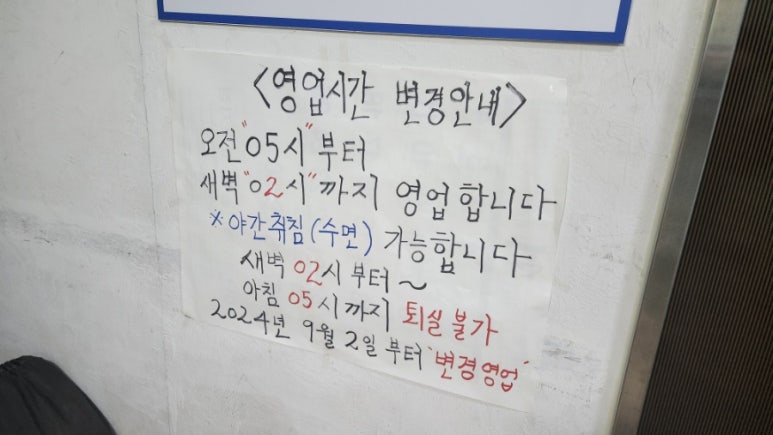 <영업시간 변경안내>
오전 "05시" 부터
새벽 "02시" 까지 영업합니다
※야간취침(수면) 가능합니다
새벽 02시 부터~
아침 05시까지 퇴실불가
2024년 9월 2일 부터 '변경영업'